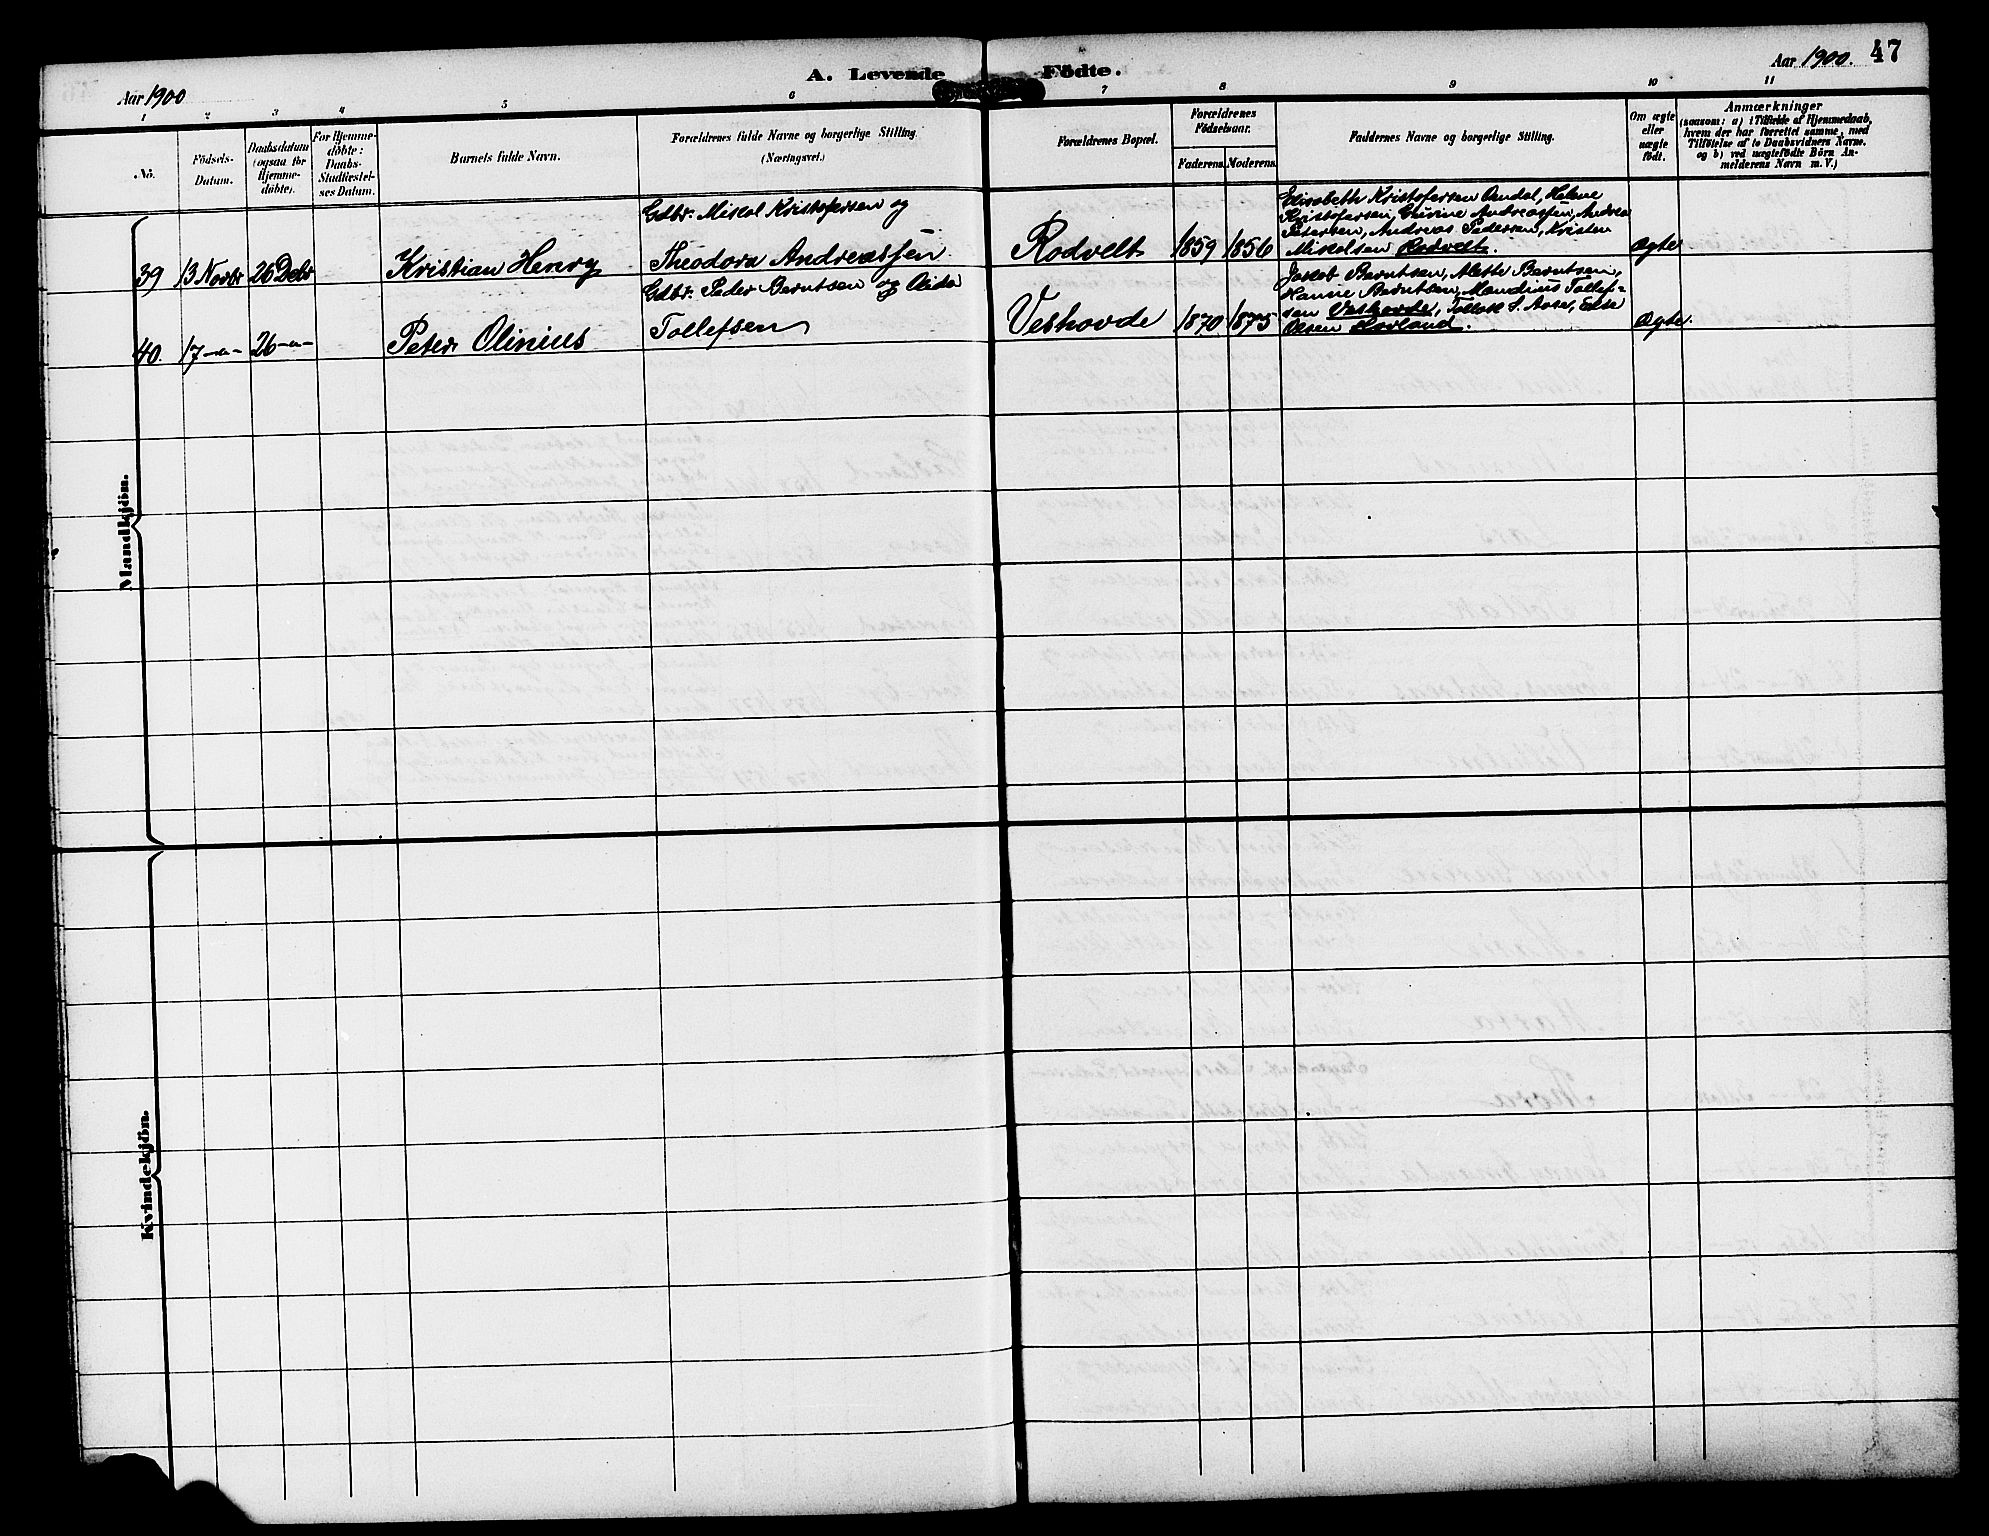 Aar 1900
A. Levende Födte.
Aar 1900. 47
1 2 3 4 5 6 7 8 9 10 11
No.
Födsels-
Datum.
Daabsdatum
(ogsaa for
Hjemme-
døbte).
For Hjemme-
døbte:
Daabs-
Stadfæstel-
ses Datum.
Barnets fulde Navn.
Forældrenes fulde Navne og borgerlige Stilling.
(Næringsvei.)
Forældrenes Bopæl.
Forældrenes
Födselsaar.
Faderens. Moderens.
Faddernes Navne og borgerlige Stilling.
Om ægte
eller
uægte
födt.
Anmærkninger
(saasom: a) i Tilfælde af Hjemmedaab,
hvem der har forrettet samme, med
Tilföielse af to Daabsvidners Navne.
og b) ved uægtefödte Börn An-
melderens Navn m. V.)
Mandkjön.
39 13 Novbr 26 Debr Kristian Henry
Gdbr. Mikal Kristofersen og
Theodora Andreassen
Rodvelt 1859 1856
Elisabeth Kristofersen Helene
Kristofersen, Gurine Andreassen, Andrea
Petersen, Andreas Pedersen, Kristen
Mikalsen Rodvelt.
Ægte
40. 17 -"- 26 -"- Peter Olinius
Gdbr. Peder Berntsen og
Tollefsen
Veshovde 1870 1875
Jakob Berntsen, Mette Berntsen,
Hanne Berntsen, Mandius Tollef-
sen Veshovde, Tollak S. Aase,
Olsen Hovland.
Ægte.
Kvindekjön.